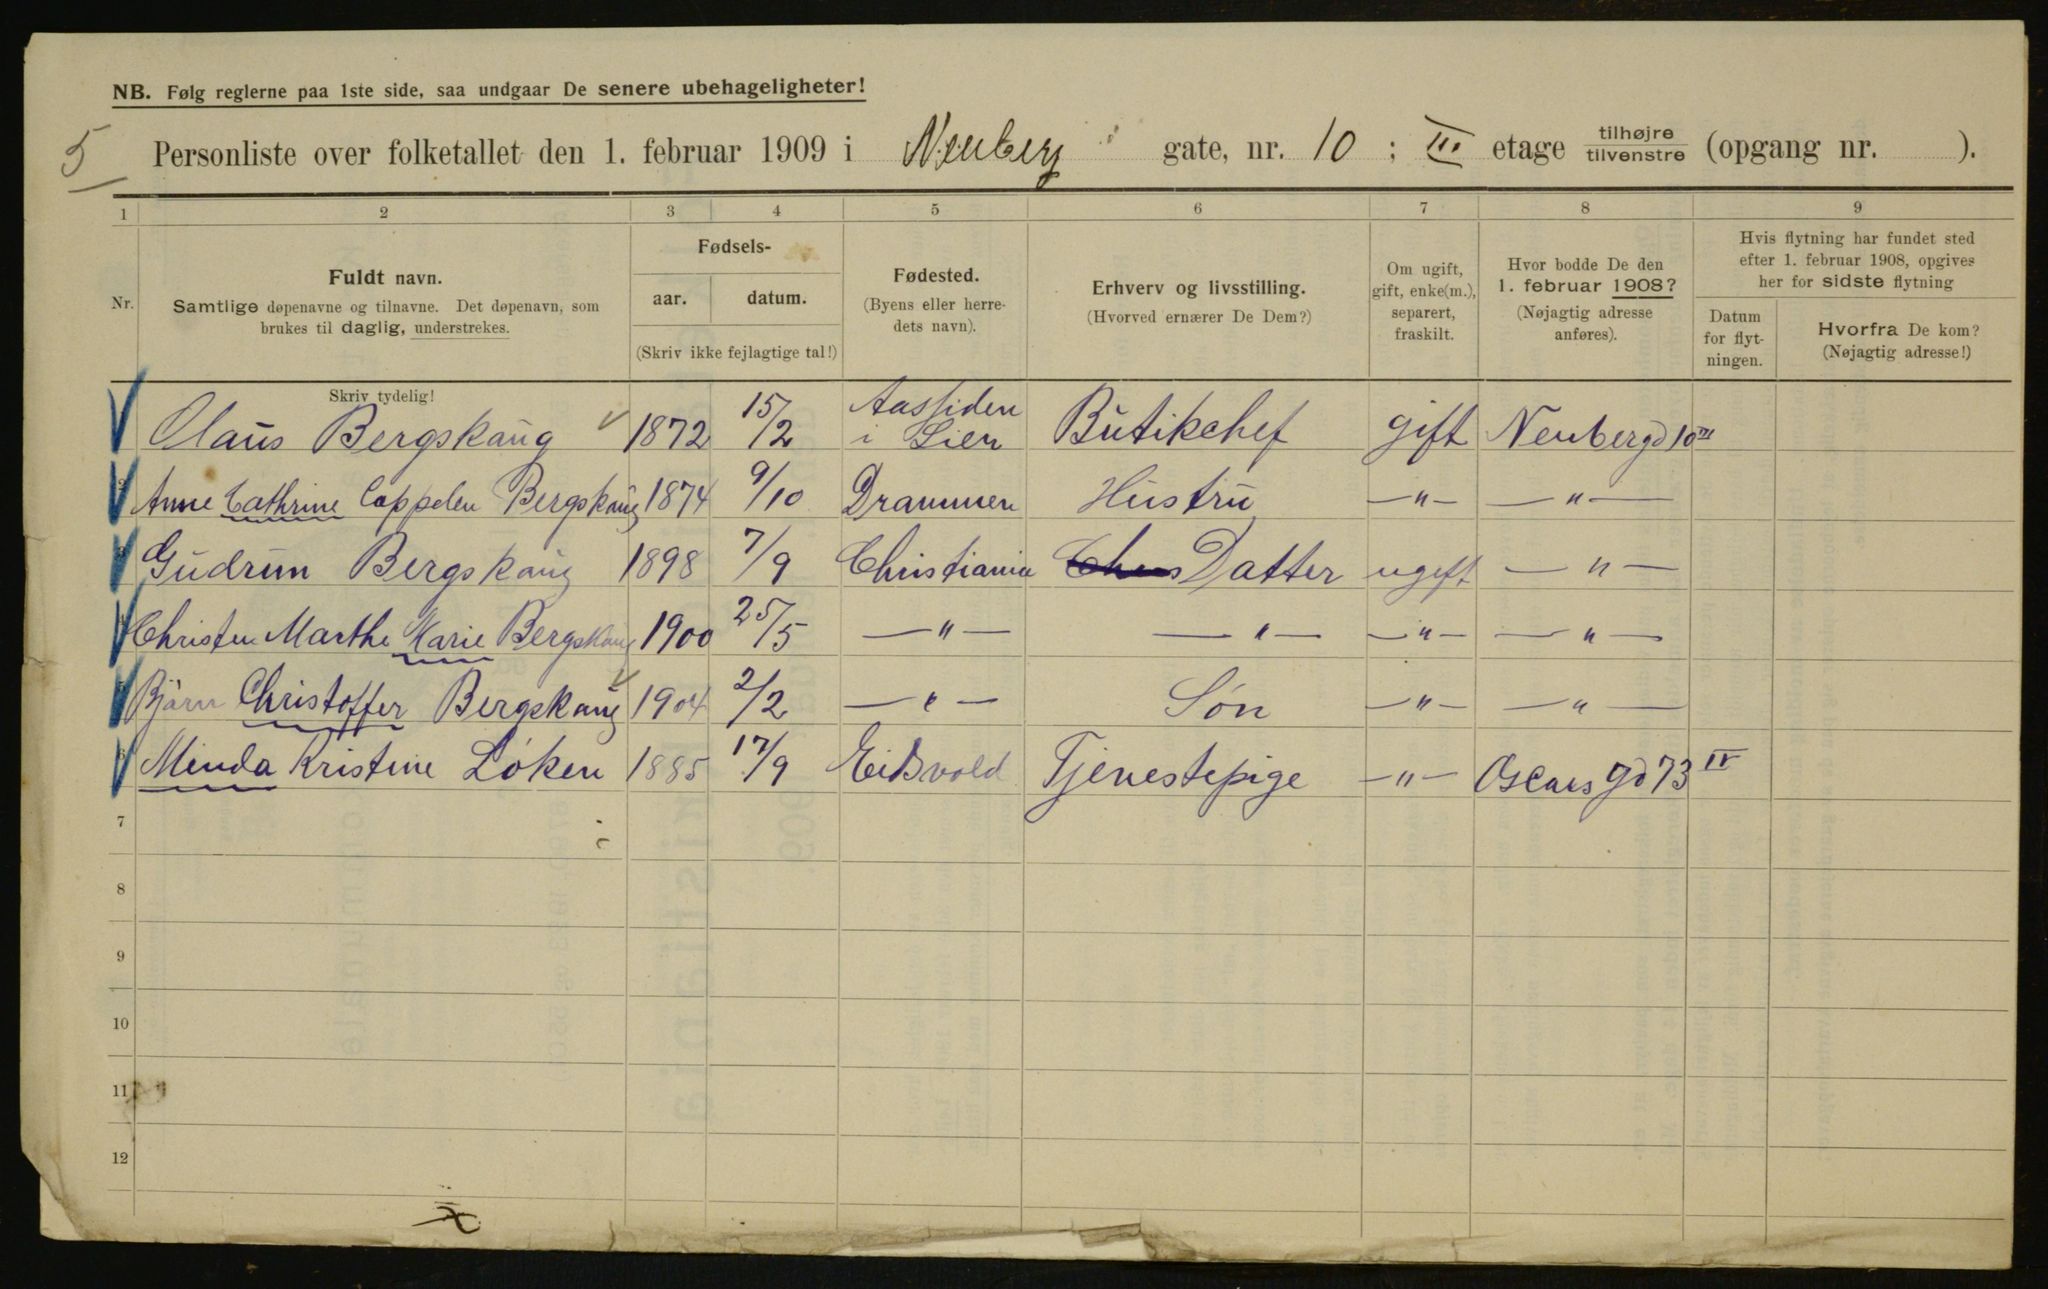 NB. Følg reglerne paa 1ste side, saa undgaar De senere ubehageligheter!
5
Personliste over folketallet den 1. februar 1909 i Neuberg gate, nr. 10 ; III etage tilhøjre / tilvenstre (opgang nr. ).
1 2 3 4 5 6 7 8 9
Nr.
Fuldt navn.
Samtlige døpenavne og tilnavne. Det døpenavn, som
brukes til daglig, understrekes.
Skriv tydelig!
Fødsels-
aar. datum.
(Skriv ikke fejlagtige tal!)
Fødested.
(Byens eller herre-
dets navn).
Erhverv og livsstilling.
(Hvorved ernærer De Dem?)
Om ugift,
gift, enke(m.),
separert,
fraskilt.
Hvor bodde De den
1. februar 1908?
(Nøjagtig adresse
anføres).
Hvis flytning har fundet sted
efter 1. februar 1908, opgives
her for sidste flytning
Datum
for flyt-
ningen.
Hvorfra De kom?
(Nøjagtig adresse!)
Claus Bergskaug 1872 15/2 Aassiden i Lier Butikchef gift Neubergd 10 III
Anne Cathrine Cappelen Bergskaug 1874 9/10 Drammen Hustru —"— —"—
Gudrun Bergskaug 1898 7/9 Christiania Datter ugift —"—
Christen Marthe Marie Bergskaug 1900 25/5 —"— —"— —"— —"—
Bjørn Christoffer Bergskaug 1904 2/2 —"— Søn —"— —"—
6 Minda Kristine Löken 1885 17/9 Eidsvold Tjenestepige —"— Oscars gd 73 IV
7
8
9
10
11
12